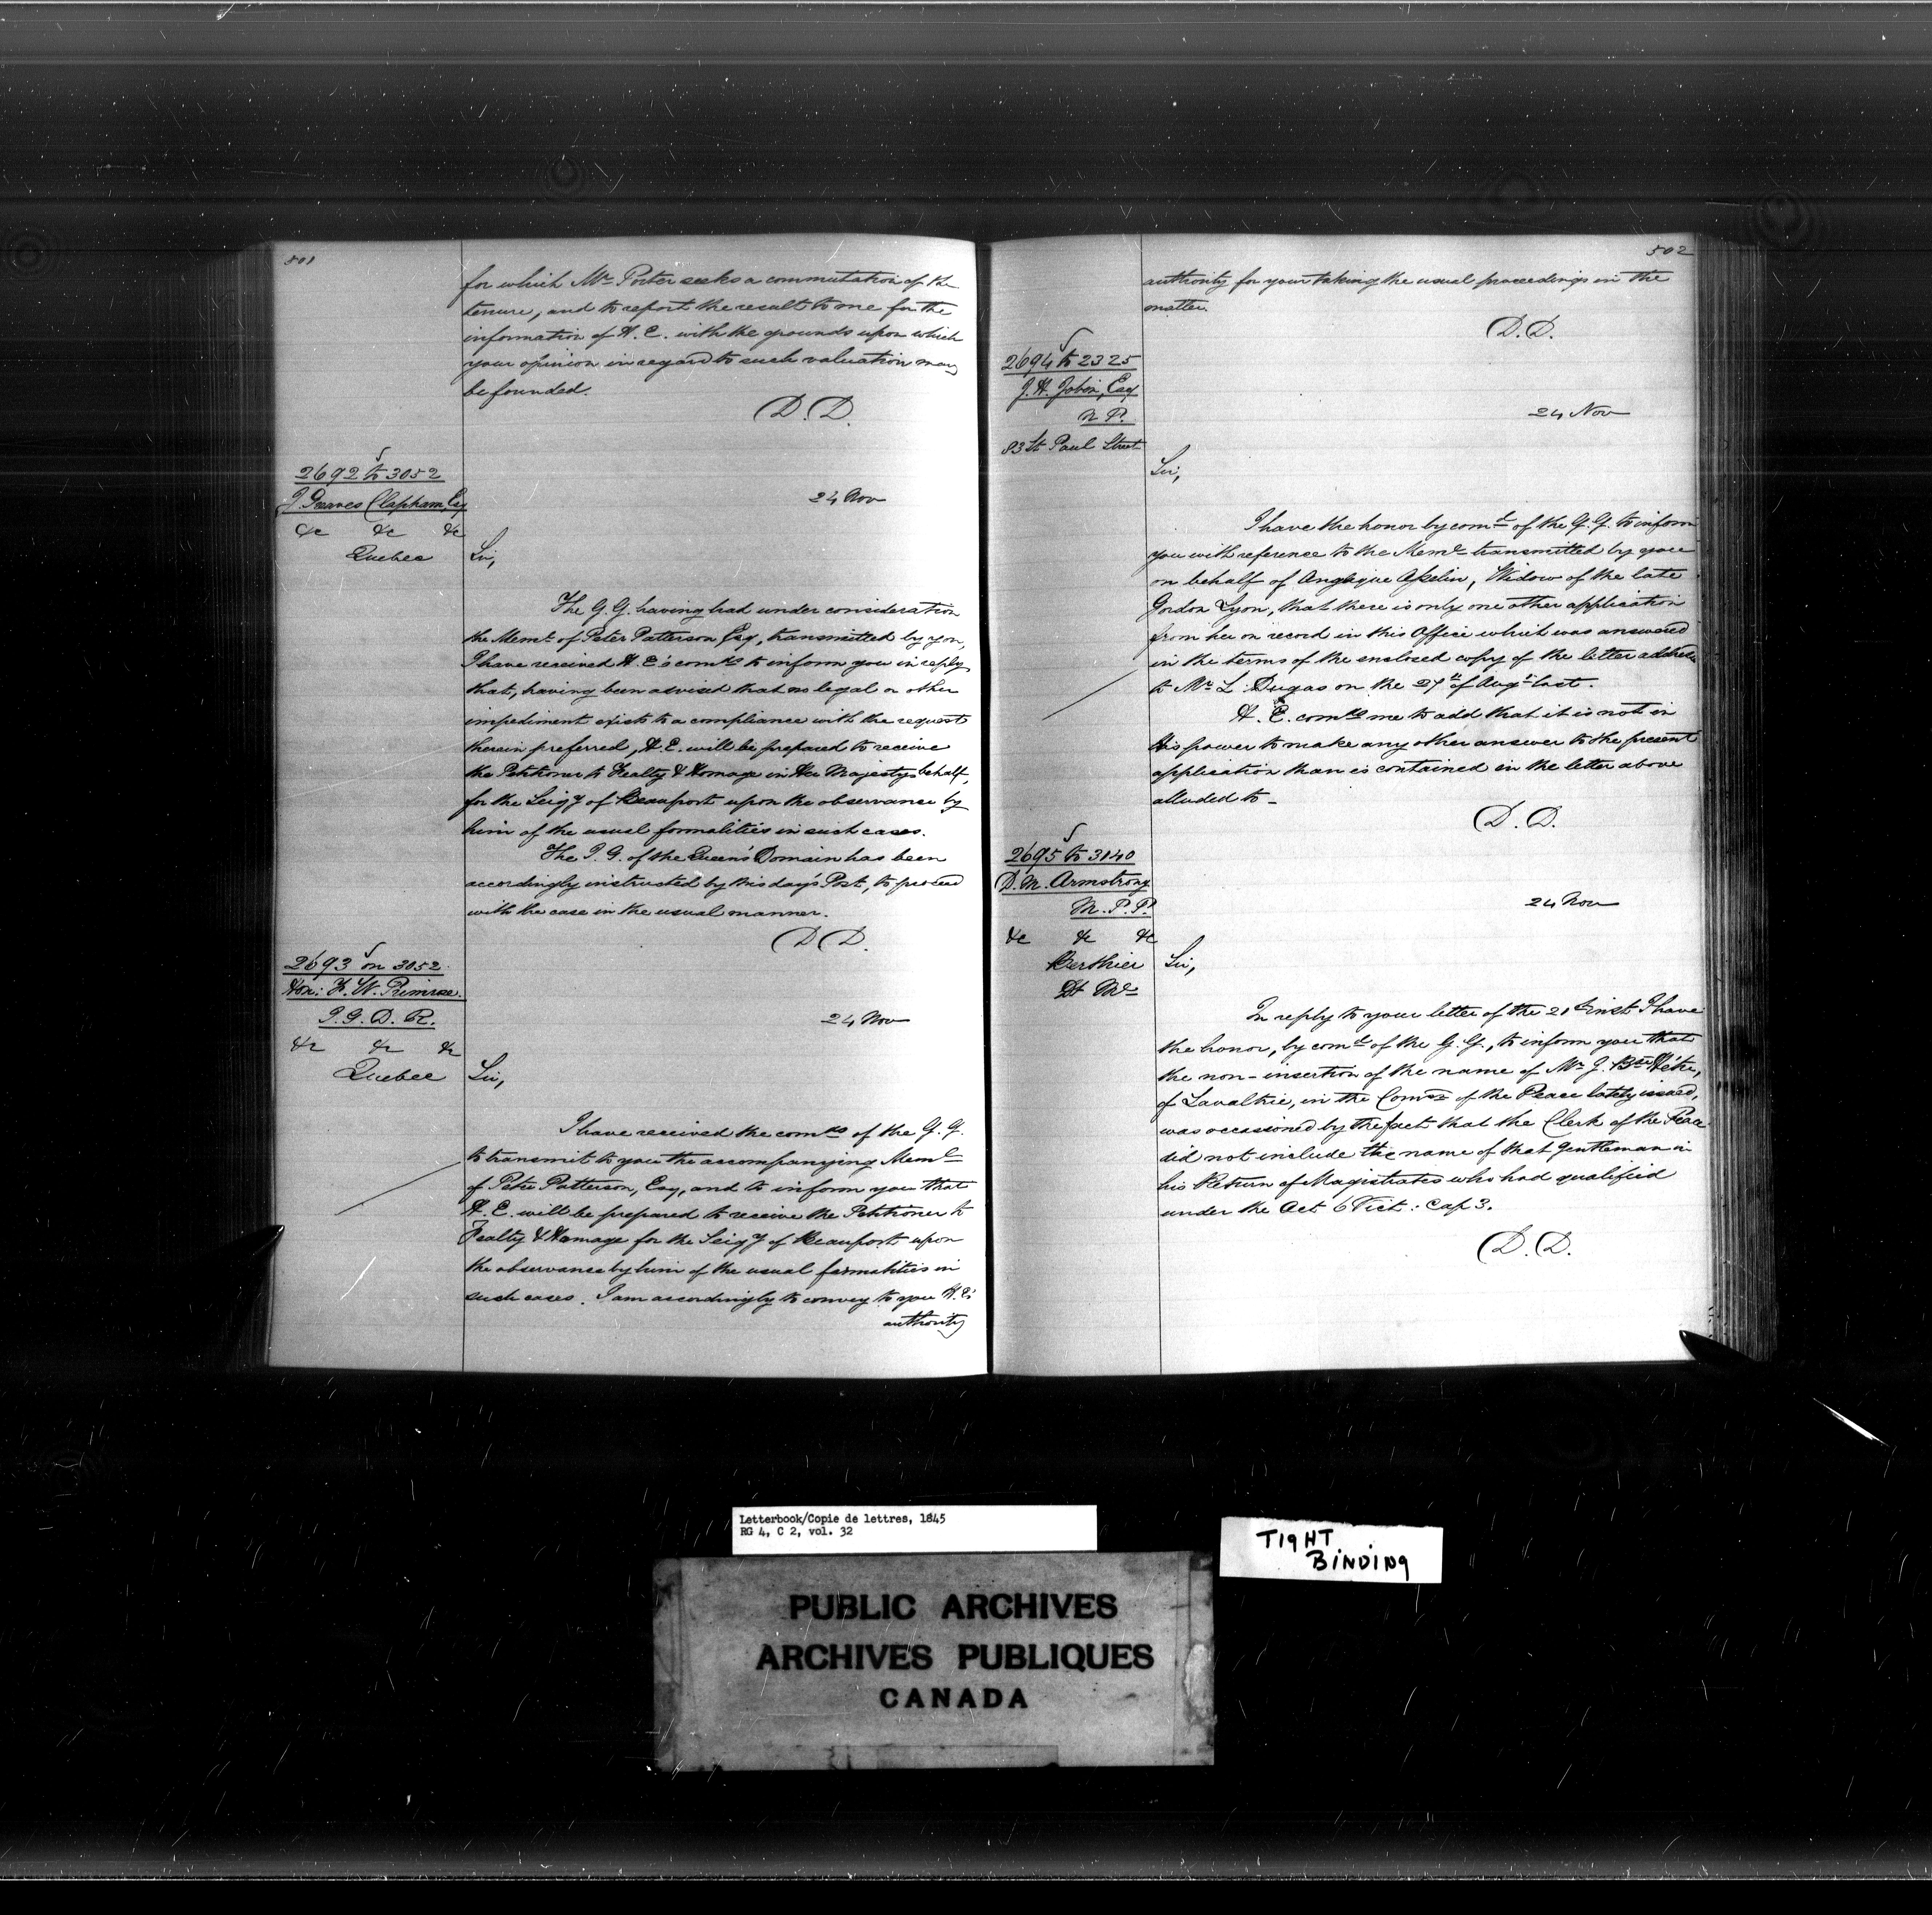 501
for which Mr. Porter seeks a commutation of the
tenure, and to report the result to me for the
information of H. E. with the grounds upon which
your opinion in regard to such valuation may
be founded.
D. D.
2692 to 3052
J. Greaves Clapham, Esq
&c &c &c
Quebec
24 Nov
Sir,
The G. G. having had under consideration
the Meml. of Peter Patterson Esq, transmitted by you,
I have received H. E's comds to inform you in reply
that, having been advised that no legal or other
impediment exists to a compliance with the request
therein preferred, H. E. will be prepared to receive
the Petitioner to Fealty & Homage in Her Majesty's behalf,
for the Seigy of Beauport upon the observance by
him of the usual formalities in such cases.
The I. G. of the Queen's Domain has been
accordingly instructed by this day's Post, to proceed
with the case in the usual manner.
D D.
2693 on 3052
Hon: F. W. Primrose.
I. G. D. R.
&c &c &c
Quebec
24 Nov
Sir,
I have received the comds of the G. G.
to transmit to you the accompanying Meml
of Peter Patterson, Esq, and to inform you that
H. E. will be prepared to receive the Petitioner to
Fealty & Homage for the Seigy of Beauport upon
the observance by him of the usual formalities in
such cases. I am accordingly to convey to you H. E's
authority
502
authority for your taking the usual proceedings in the
matter.
D. D.
2694 to 2325
J. H. Jobin, Esq
N. P.
83 St. Paul Street
24 Nov
Sir,
I have the honor by comd of the G. G. to inform
you with reference to the Meml transmitted by you
on behalf of Asselin, Widow of the late
Gordon Lyon, that there is only one other application
from her on record in this Office which was answered
in the terms of the enclosed copy of the letter
to Mr. L. Dugas on the 27th of Augt last.
H. E. comds me to add that it is not in
his power to make any other answer to the present
application than is contained in the letter above
alluded to -
D. D.
2695 to 3140
D. M. Armstrong
M. P. P.
&c &c &c
Berthier
Dt Ml
24 Nov
Sir,
In reply to your letter of the 21st inst I have
the honor, by comd of the G. G., to inform you that
the non-insertion of the name of Mr. J. Bte Hétu,
of Lavaltrie, in the Comn of the Peace lately issued,
was occasioned by the fact that the Clerk of the Peace
did not include the name of that Gentleman in
his Return of Magistrates who had qualified
under the Act 6 Vict: Cap 3.
D. D.
Letterbook/Copie de lettres, 1845
RG 4, C 2, vol. 32
TIGHT
BINDING
PUBLIC ARCHIVES
ARCHIVES PUBLIQUES
CANADA